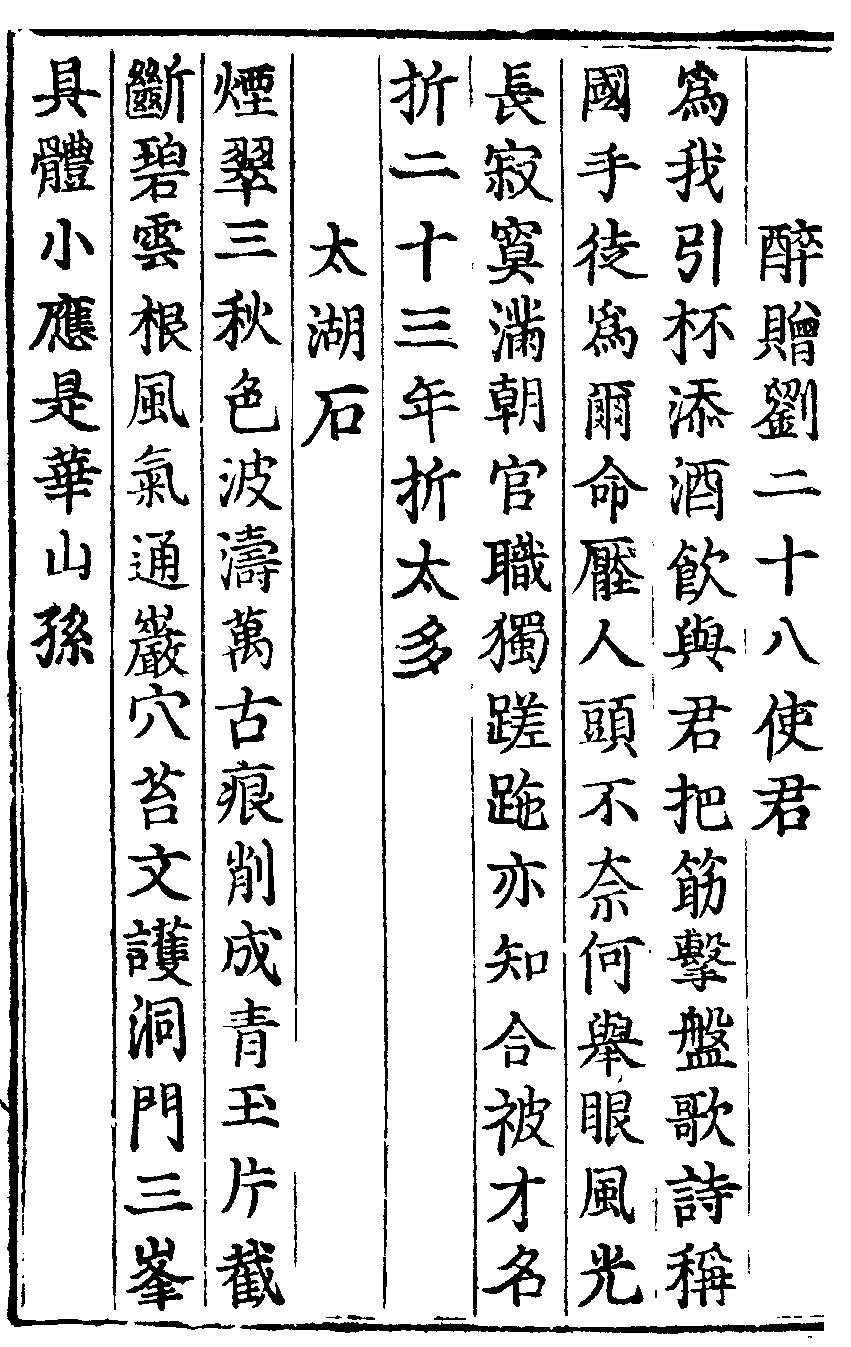 醉贈劉二十八使君
爲我引杯添酒飲與君把筯擊盤歌詩稱
國手徒爲爾命壓人頭不奈何舉眼風光
長寂寞滿朝官職獨蹉跎亦知合被才名
折二十三年折太多
太湖石
煙翠三秋色波濤萬古痕削成青玉片截
斷碧雲根風氣通巖穴苔文護洞門三峯
具體小應是華山孫